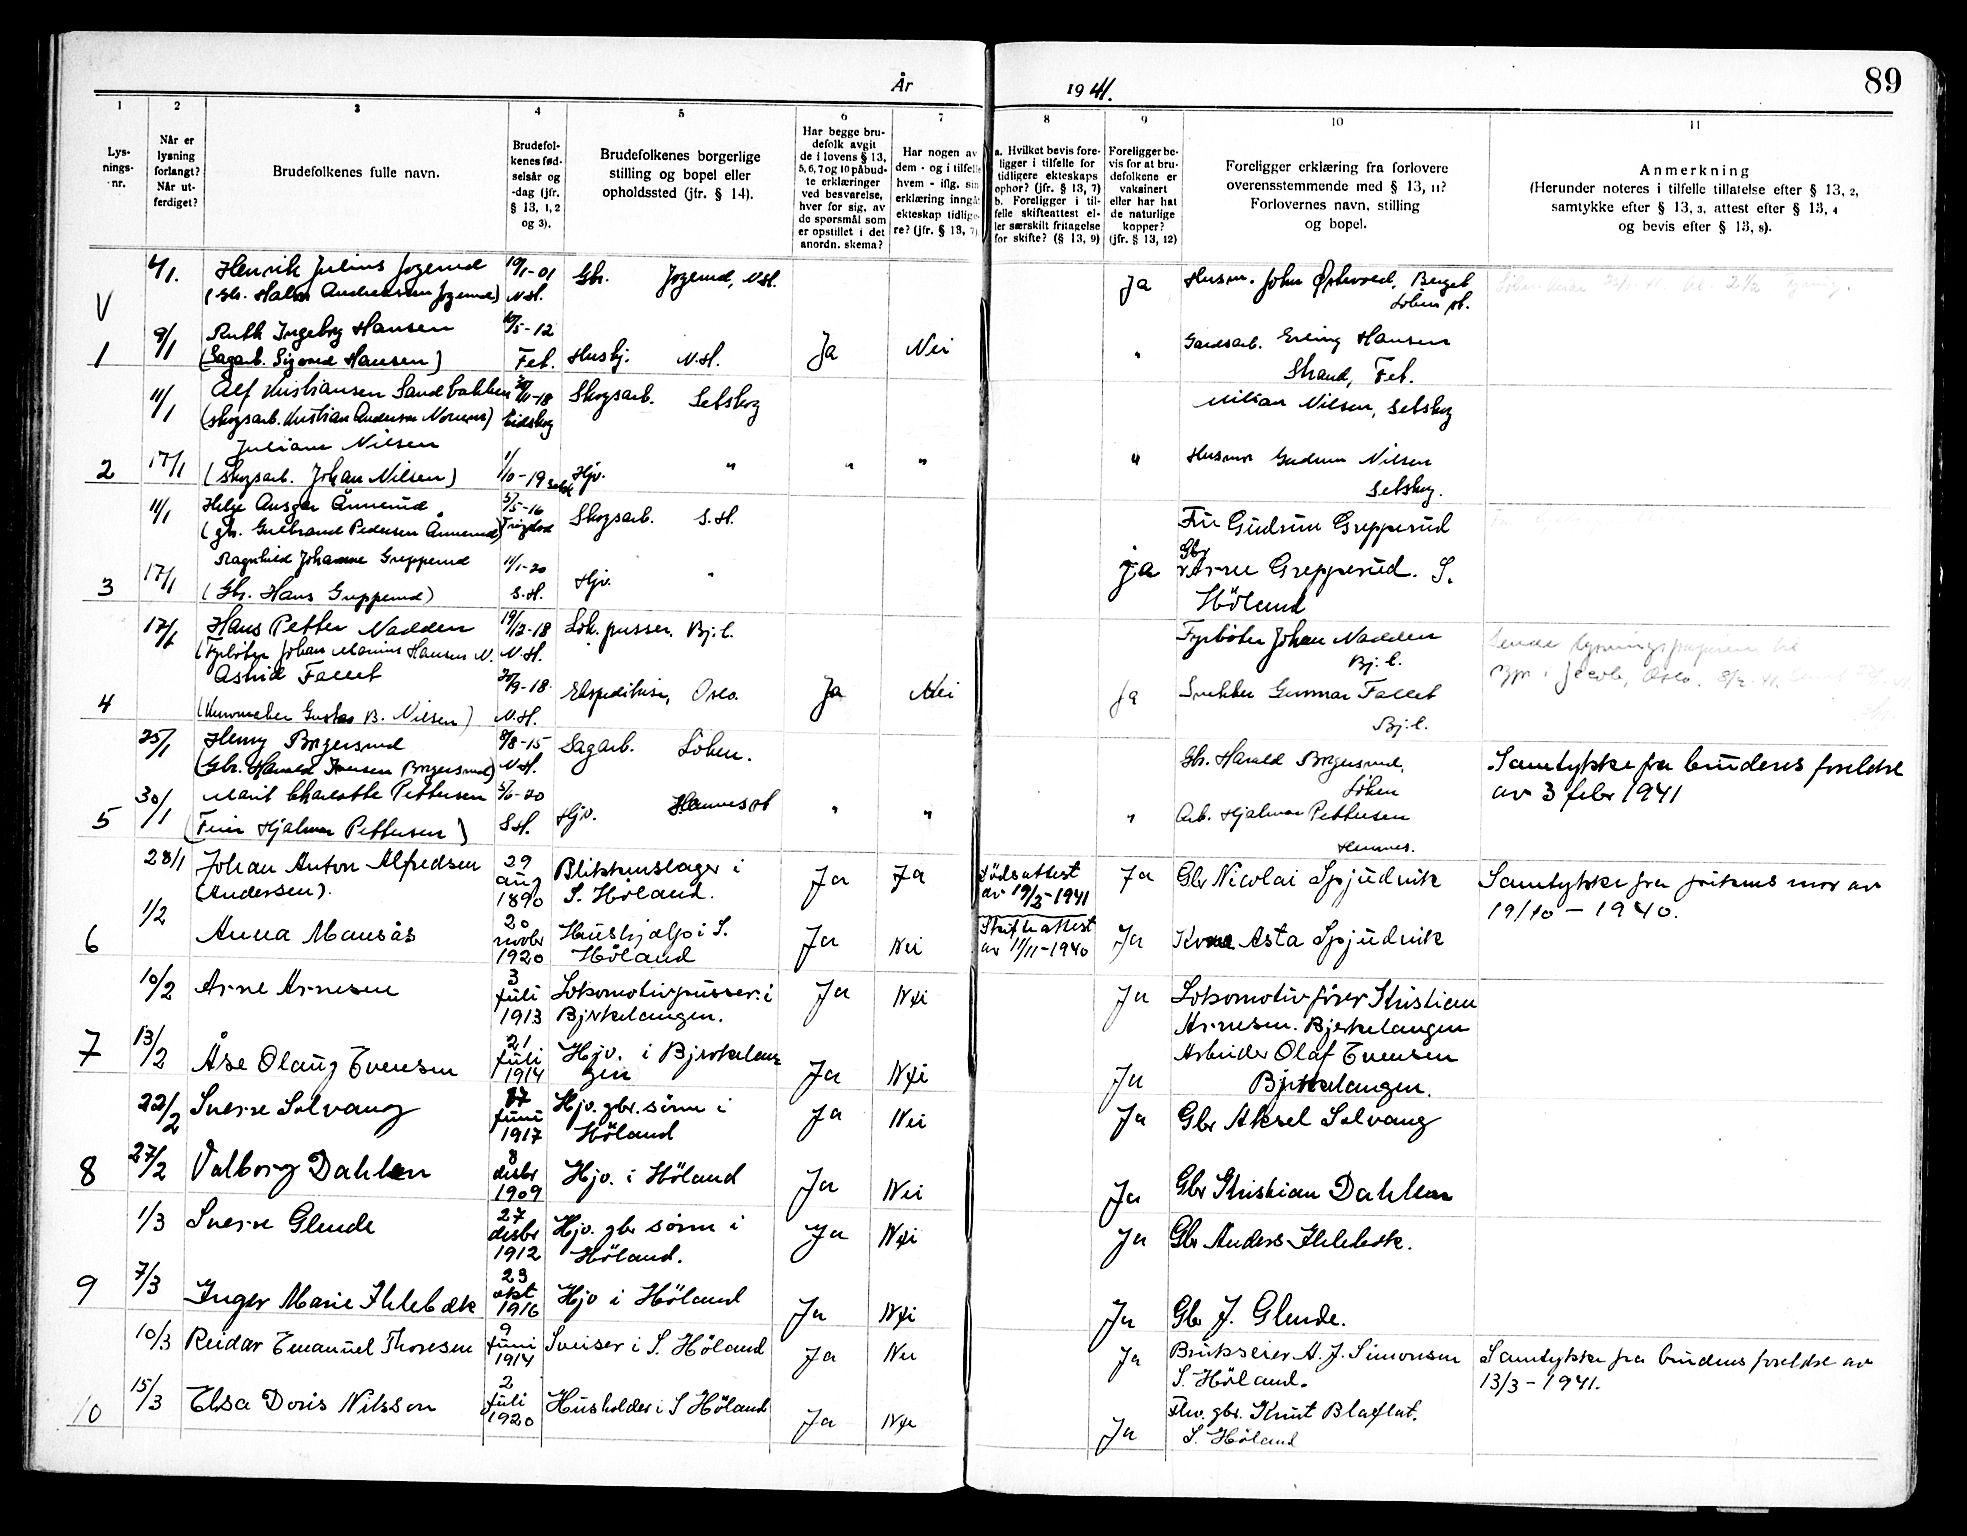 89
År 1941.
1 2 3 4 5 6 7 8 9 10 11
Lys-
nings-
nr.
Når er
lysning
forlangt?
Når ut-
ferdiget?
Brudefolkenes fulle navn.
Brudefol-
kenes fød-
selsår og
-dag (jfr.
§ 13, 1, 2
og 3).
Brudefolkenes borgerlige
stilling og bopel eller
opholdssted (jfr. § 14).
Har begge bru-
defolk avgit
de i lovens § 13,
5, 6, 7 og 10 påbud-
te erklæringer
ved besvarelse,
hver for sig, av
de spørsmål som
er opstillet i det
anordn. skema?
Har nogen av
dem - og i tilfelle
hvem - iflg. sin
erklæring inngåt
ekteskap tidlige-
re? (jfr. § 13, 7)
a. Hvilket bevis fore-
ligger i tilfelle for
tidligere ekteskaps
ophør? (jfr. § 13, 7)
b. Foreligger i til-
felle skifteattest el-
ler særskilt fritagelse
for skifte? (§ 13, 9)
Foreligger be-
vis for at bru-
defolkene er
vaksinert
eller har hat
de naturlige
kopper?
(jfr. § 13, 12)
Foreligger erklæring fra forlovere
overensstemmende med § 13, 11?
Forlovernes navn, stilling
og bopel.
Anmerkning
(Herunder noteres i tilfelle tillatelse efter § 13, 2,
samtykke efter § 13, 3, attest efter § 13, 4
og bevis efter § 13, 8).
V 4/1. Henrik Julius Jogerud 19/1-01 Gbr. Jogerud, N.H. Ja Husm. John Østvold, Berget
(Gbr. Halvor Andreassen Jogerud) N.H. Løken st.
1 9/1 Ruth Ingeborg Hansen 10/5-12
(Sagarb. Sigvard Hansen) Fet. Hushj. N.H. Ja Nei " Gardsarb. Erling Hansen
Strand, Fet.
11/1 Alf Kristiansen Sandbakken 11-18 Skogsarb. Setskog Milian Nilsen, Setskog
(skogsarb. Kristian Andersen) Eidskog
Juliane Nilsen
2 17/1 (skogsarb. Johan Nilsen) 1/10-19 Setsk. Hjv. " " " " Husmor Gudrun Nilsen
Setskog.
11/1 Helge Ansgar Ånnerud 5/5-16 Skogsarb. S.H. Fru Gudrun Grepperud
(gbr. Gulbrand Pedersen Ånnerud) Trøgstad
Ragnhild Johanne Grepperud 11/1-20
3 17/1 (Gbr. Hans Grepperud) S.H. Hjv. " ja Gbr Arne Grepperud. S.
Höland
17/1 Hans Petter Nadden 19/12-18 Lok. pusser. Bj.l. Fyrbøter Johan Nadden
(Fyrbøter Johan Marius Hansen N. N.H. Bj.l.
Astrid Fallet
4 20/9-18. Ekspeditrise, Oslo. Ja Nei Ja Snekker Gunnar Fallet
(Gustav B. Nilsen) N.H. Bj.l.
25/1 Henry Borgersrud 9/8-15 Sagarb. Löken. Gbr. Harald Borgersrud, Samtykke fra brudens foreldre
(Gbr. Harald Iversen Borgersrud) N.H. Löken av 3 febr 1941
5 30/1 Marit Charlotte Pettersen 5/6-20 Hjv. Hemnes st " " " Arb. Hjalmar Pettersen
(Hjalmar Pettersen) S.H. Hemnes.
28/1 Johan Anton Alfredsen 29 aug 1890 Blikkenslager i S. Höland. Ja Ja Dødsattest av 19/3-1941 Ja Gbr Nicolai Spjudvik Samtykke fra pikens mor av
(Andersen). 19/10-1940.
6 1/2 Anna Mansås 20 novbr 1920 Hushjelp i S. Höland Ja Nei Skifteattest av 11/11-1940 Ja Kone Asta Spjudvik
10/2 Arne Arnesen 3 Juli 1913 Lokomotivpusser i Bjerkelangen. Ja Nei Ja Lokomotivfører Kristian
Arnesen. Bjerkelangen
7 13/2 Åse Olaug Evensen 21 Juli 1914 Hjv. i Bjerkelan-
gen Ja Nei Ja Arbeider Olaf Evensen
Bjerkelangen.
22/2 Sverre Solvang 17 Juni 1917 Hjv. gbr. sønn i Höland Ja Nei Ja Gbr Aksel Solvang
8 27/2 Valborg Dahlen 8 desbr 1909 Hjv. i Höland Ja Nei Ja Gbr Kristian Dahlen
1/3 Sverre Glende 27 desbr 1912 Hjv. gbr sønn i Höland. Ja Nei Ja Gbr Anders Ihlebæk.
9 7/3 Inger Marie Ihlebæk 23 okt 1916 Hjv i Höland Ja Nei Ja Gbr J. Glende.
10/3 Reidar Emanuel Thoresen 9 Juni 1914 Sveiser i S. Höland Ja Nei Ja Brukseier A. J. Simonsen Samtykke fra brudens foreldre av
S. Höland. 13/3-1941.
10 15/3 Elsa Doris Nilsson 2 Juli 1920 Husholder i S Höland Ja Nei Ja Fhv. gbr. Knut Blaflat.
S. Höland